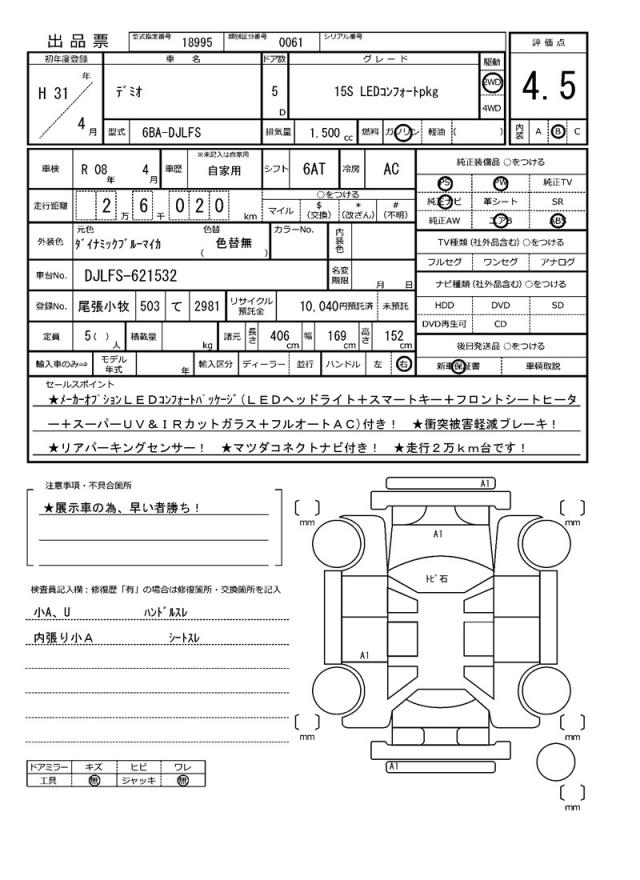 出品票 型式指定番号 18995 類別区分番号 0061 シリアル番号
評価点
4.5
内装 A B C
初年度登録 車名 ドア数 グレード 駆動
H 31 年 4 月
デミオ
5 D
15S LEDコンフォートpkg
2WD
4WD
型式 6BA-DJLFS 排気量 1.500 cc 燃料 ガソリン 軽油 ( )
車検 R 08 年 4 月 車歴 ※未記入は自家用 自家用 シフト 6AT 冷房 AC
走行距離 2 万 6 千 0 2 0 km
○をつける
マイル $ (交換) * (改ざん) # (不明)
外装色 元色 ダイナミックブルーマイカ 色替 ( 色替無 ) カラーNo. 内装色
車台No. DJLFS-621532 名変期限 月 日
登録No. 尾張小牧 503 て 2981 リサイクル預託金 10,040円預託済 未預託
定員 5( ) 人 積載量 kg 諸元 長さ 406 cm 幅 169 cm 高さ 152 cm
輸入車のみ⇒ モデル年式 年 輸入区分 ディーラー 並行 ハンドル 左 右
純正装備品 ○をつける
PS PW 純正TV
純正ナビ 革シート SR
純正AW エアB ABS
TV種類(社外品含む)○をつける
フルセグ ワンセグ アナログ
ナビ種類(社外品含む)○をつける
HDD DVD SD
DVD再生可 CD
後日発送品 ○をつける
新車保証書 車輌取説
セールスポイント
★メーカーオプションLEDコンフォートパッケージ(LEDヘッドライト+スマートキー+フロントシートヒータ
ー+スーパーUV&IRカットガラス+フルオートAC)付き! ★衝突被害軽減ブレーキ!
★リアパーキングセンサー! ★マツダコネクトナビ付き! ★走行2万km台です!
注意事項・不具合箇所
★展示車の為、早い者勝ち!
検査員記入欄:修復歴「有」の場合は修復箇所・交換箇所を記入
小A、U ハンドルスレ
内張り小A シートスレ
ドアミラー キズ ヒビ ワレ
工具 無 ジャッキ 無
A1
A1
トビ石
A1
A1
mm
mm
mm
mm
mm